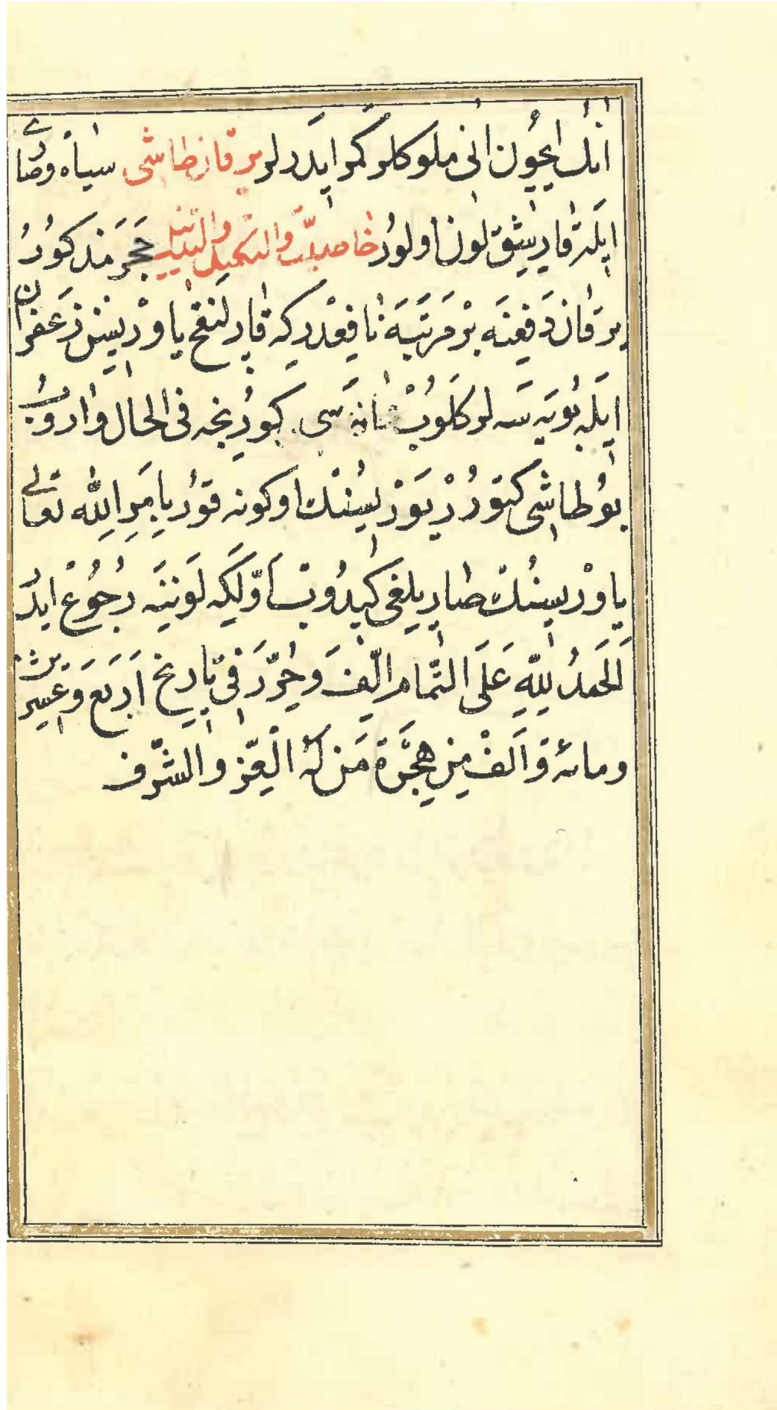 انك ایچون انی ملوکلر کمر ایدرلر یرقان طاشی سیاه و صاری
ایله قاریشق لون اولور خاصیات والتکمیل والتذییل حجر مذکور
یرقان دفعنه بر مرتبه نافعدر که قارلنقج یاوریسن زعفران
ایله بویه سه لر کلوب کورنجه فی الحال واروب
بو طاشی کتورر یوریسنك اوکونه قور بامر الله تعالی
یاوریسنك صاریلغی کیدوب اولکه لوننه رجوع ایدر
الحمد لله علی التمام الف و حرر فی تاریخ اربع و عشرین
ومائه و الف من هجرة من له العز والشرف